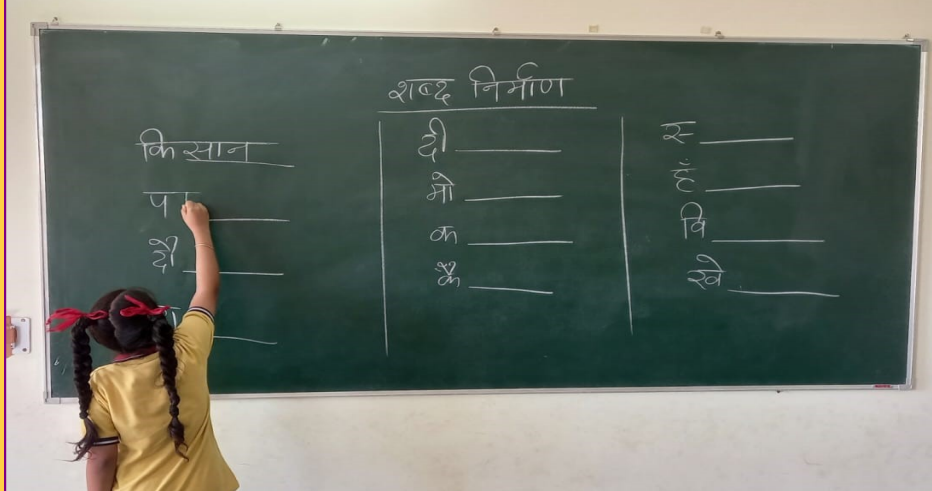 शब्द निर्माण
किसान
पा
दौ
दी
मो
क
कै
स
हँ
वि
खे